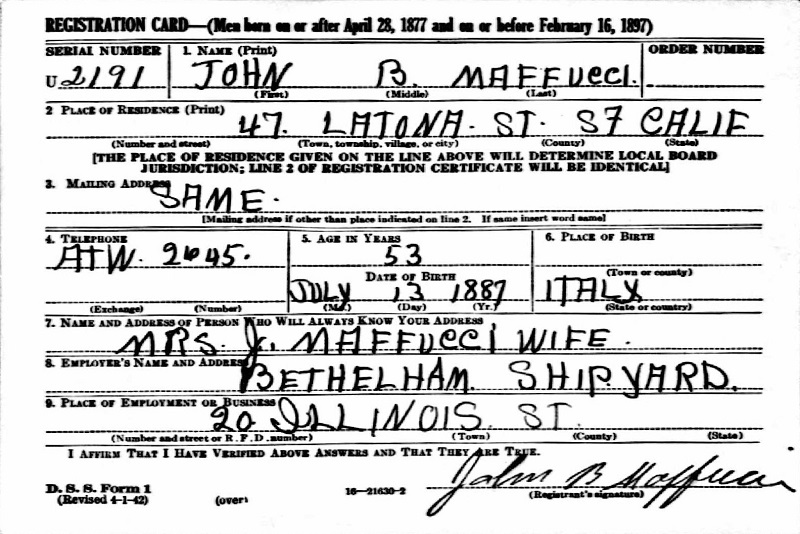 REGISTRATION CARD—(Men born on or after April 28, 1877 and on or before February 16, 1897)
SERIAL NUMBER 1. NAME (Print) ORDER NUMBER
U 2191 JOHN B. MAFFUCCI.
(First) (Middle) (Last)
2 PLACE OF RESIDENCE (Print)
47. LATONA. ST. SF CALIF
(Number and street) (Town, township, village, or city) (County) (State)
[THE PLACE OF RESIDENCE GIVEN ON THE LINE ABOVE WILL DETERMINE LOCAL BOARD
JURISDICTION; LINE 2 OF REGISTRATION CERTIFICATE WILL BE IDENTICAL]
3. MAILING ADDRESS
SAME.
[Mailing address if other than place indicated on line 2. If same insert word same]
4. TELEPHONE 5. AGE IN YEARS 6. PLACE OF BIRTH
ATW. 2645. 53
(Town or county)
DATE OF BIRTH
JULY 13 1887 ITALY
(Exchange) (Number) (Mo.) (Day) (Yr.) (State or country)
7. NAME AND ADDRESS OF PERSON WHO WILL ALWAYS KNOW YOUR ADDRESS
MRS. J. MAFFUCCI WIFE.
8. EMPLOYER'S NAME AND ADDRESS
BETHELHAM. SHIPYARD.
9. PLACE OF EMPLOYMENT OR BUSINESS
20 ILLINOIS. ST.
(Number and street or R. F. D. number) (Town) (County) (State)
I AFFIRM THAT I HAVE VERIFIED ABOVE ANSWERS AND THAT THEY ARE TRUE.
John B Maffucci
D. S. S. Form 1
(Revised 4-1-42) (over) 16—21630-2 (Registrant's signature)